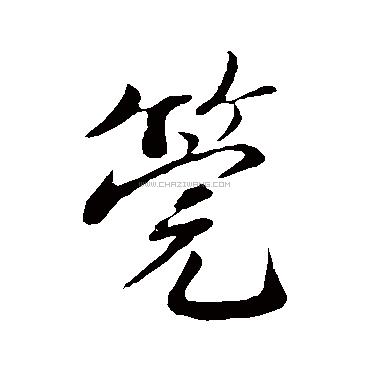 筦
WWW.CHAZIWANG.COM